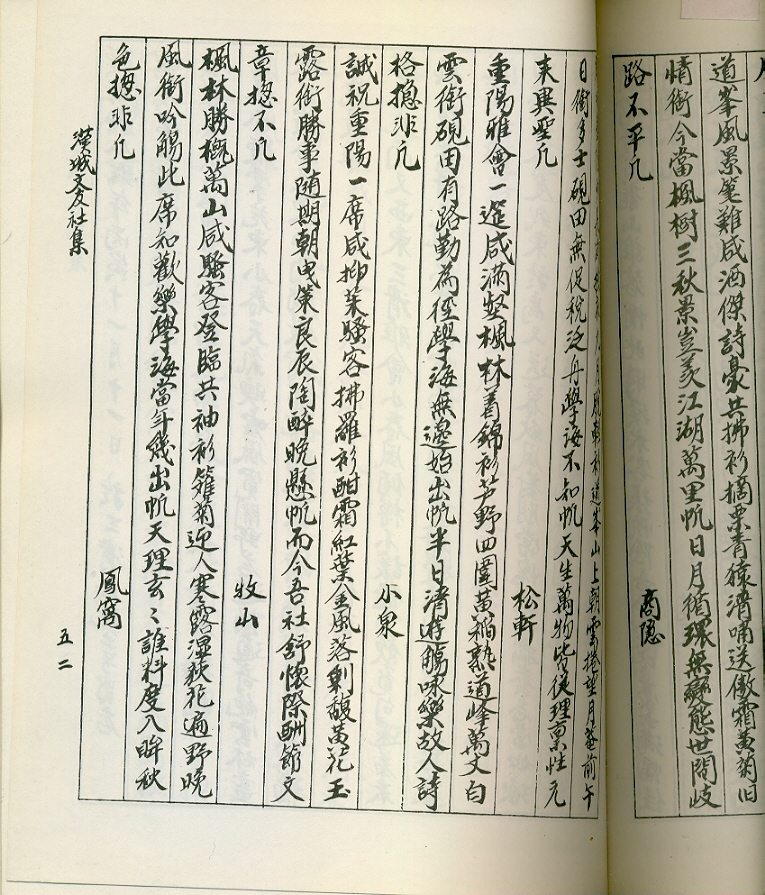 道峯風景笔難咸酒傑詩豪共拂衫摘栗青猿清嘯送傲霜黃菊旧
情銜今當楓樹三秋景豈羨江湖萬里帆日月循環無變態世間岐
路不平凡
商隱
山上朝雲捲望月菴前午
日銜多士硯田無促稅泛舟學海不知帆天生萬物皆從理稟性元
来異聖凡
松軒
重陽雅會一筵咸滿壑楓林着錦衫芦野四圍黃稲熟道峰萬丈白
雲銜硯田有路勤為徑學海無邊始出帆半日清遊觴咏樂故人詩
格摠非凡
小泉
誠祝重陽一席咸抑茱騷客拂羅衫酣霜紅葉金風落剩馥黃花玉
露銜勝事随期朝曳策良辰陶醉晚懸帆而今吾社舒懷際酬節文
章摠不凡
牧山
楓林勝概萬山咸騷客登臨共袖衫籬菊迎人寒露湿荻花遍野晚
風銜吟觴此席知歡樂學海當年幾出帆天理玄〻誰料度入眸秋
色摠非凡
鳳窩
漢城文友社集
五二